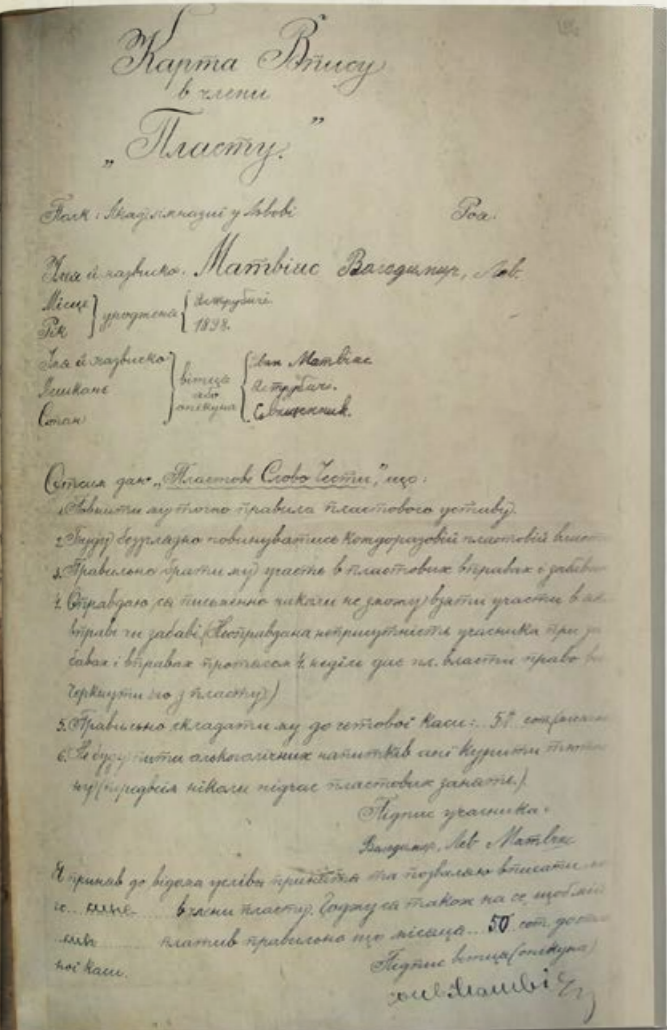 Карта Впису
в члени
„Пласту.”
Полк: Акад. гімназиї у Львові Роа.
Імя й назвиско: Матвіяс Володимир, Лев.
Місце
Рік
уроджена
1898.
Імя й назвиско
Мешканє
Стан
вітця
або
опікуна
Іван Матвіяс
Яструбичі.
Священник.
Отсим даю „Пластове Слово Чести”, що:
1. Повнити му точно правила пластового уставу.
2. Буду безглядно повинуватись кождоразовій пластовій
3. Правильно брати му участь в пластових вправах і
4. Оправдаю ся письменно наколи не зможу взяти участи в
вправі чи забаві. (Несправдана неприсутність учасника при
бавах і вправах протягом 4. неділь дає пл. власти право
черкнути єго з пласту.)
5. Правильно складати му до четової каси: 50 сот.
6. Не буду пити алькоголічних напитків ані курити
ну (передвсім ніколи підчас пластових занять.)
Підпис учасника:
Володимир, Лев Матвіяс
Я приняв до відома услівя принятя та позваляю вписати
го сина в члени пласту. Годжу ся також на се, щоб мій
син платив правильно що місяця 50 сот. до
ної каси.
Підпис вітця (опікуна)